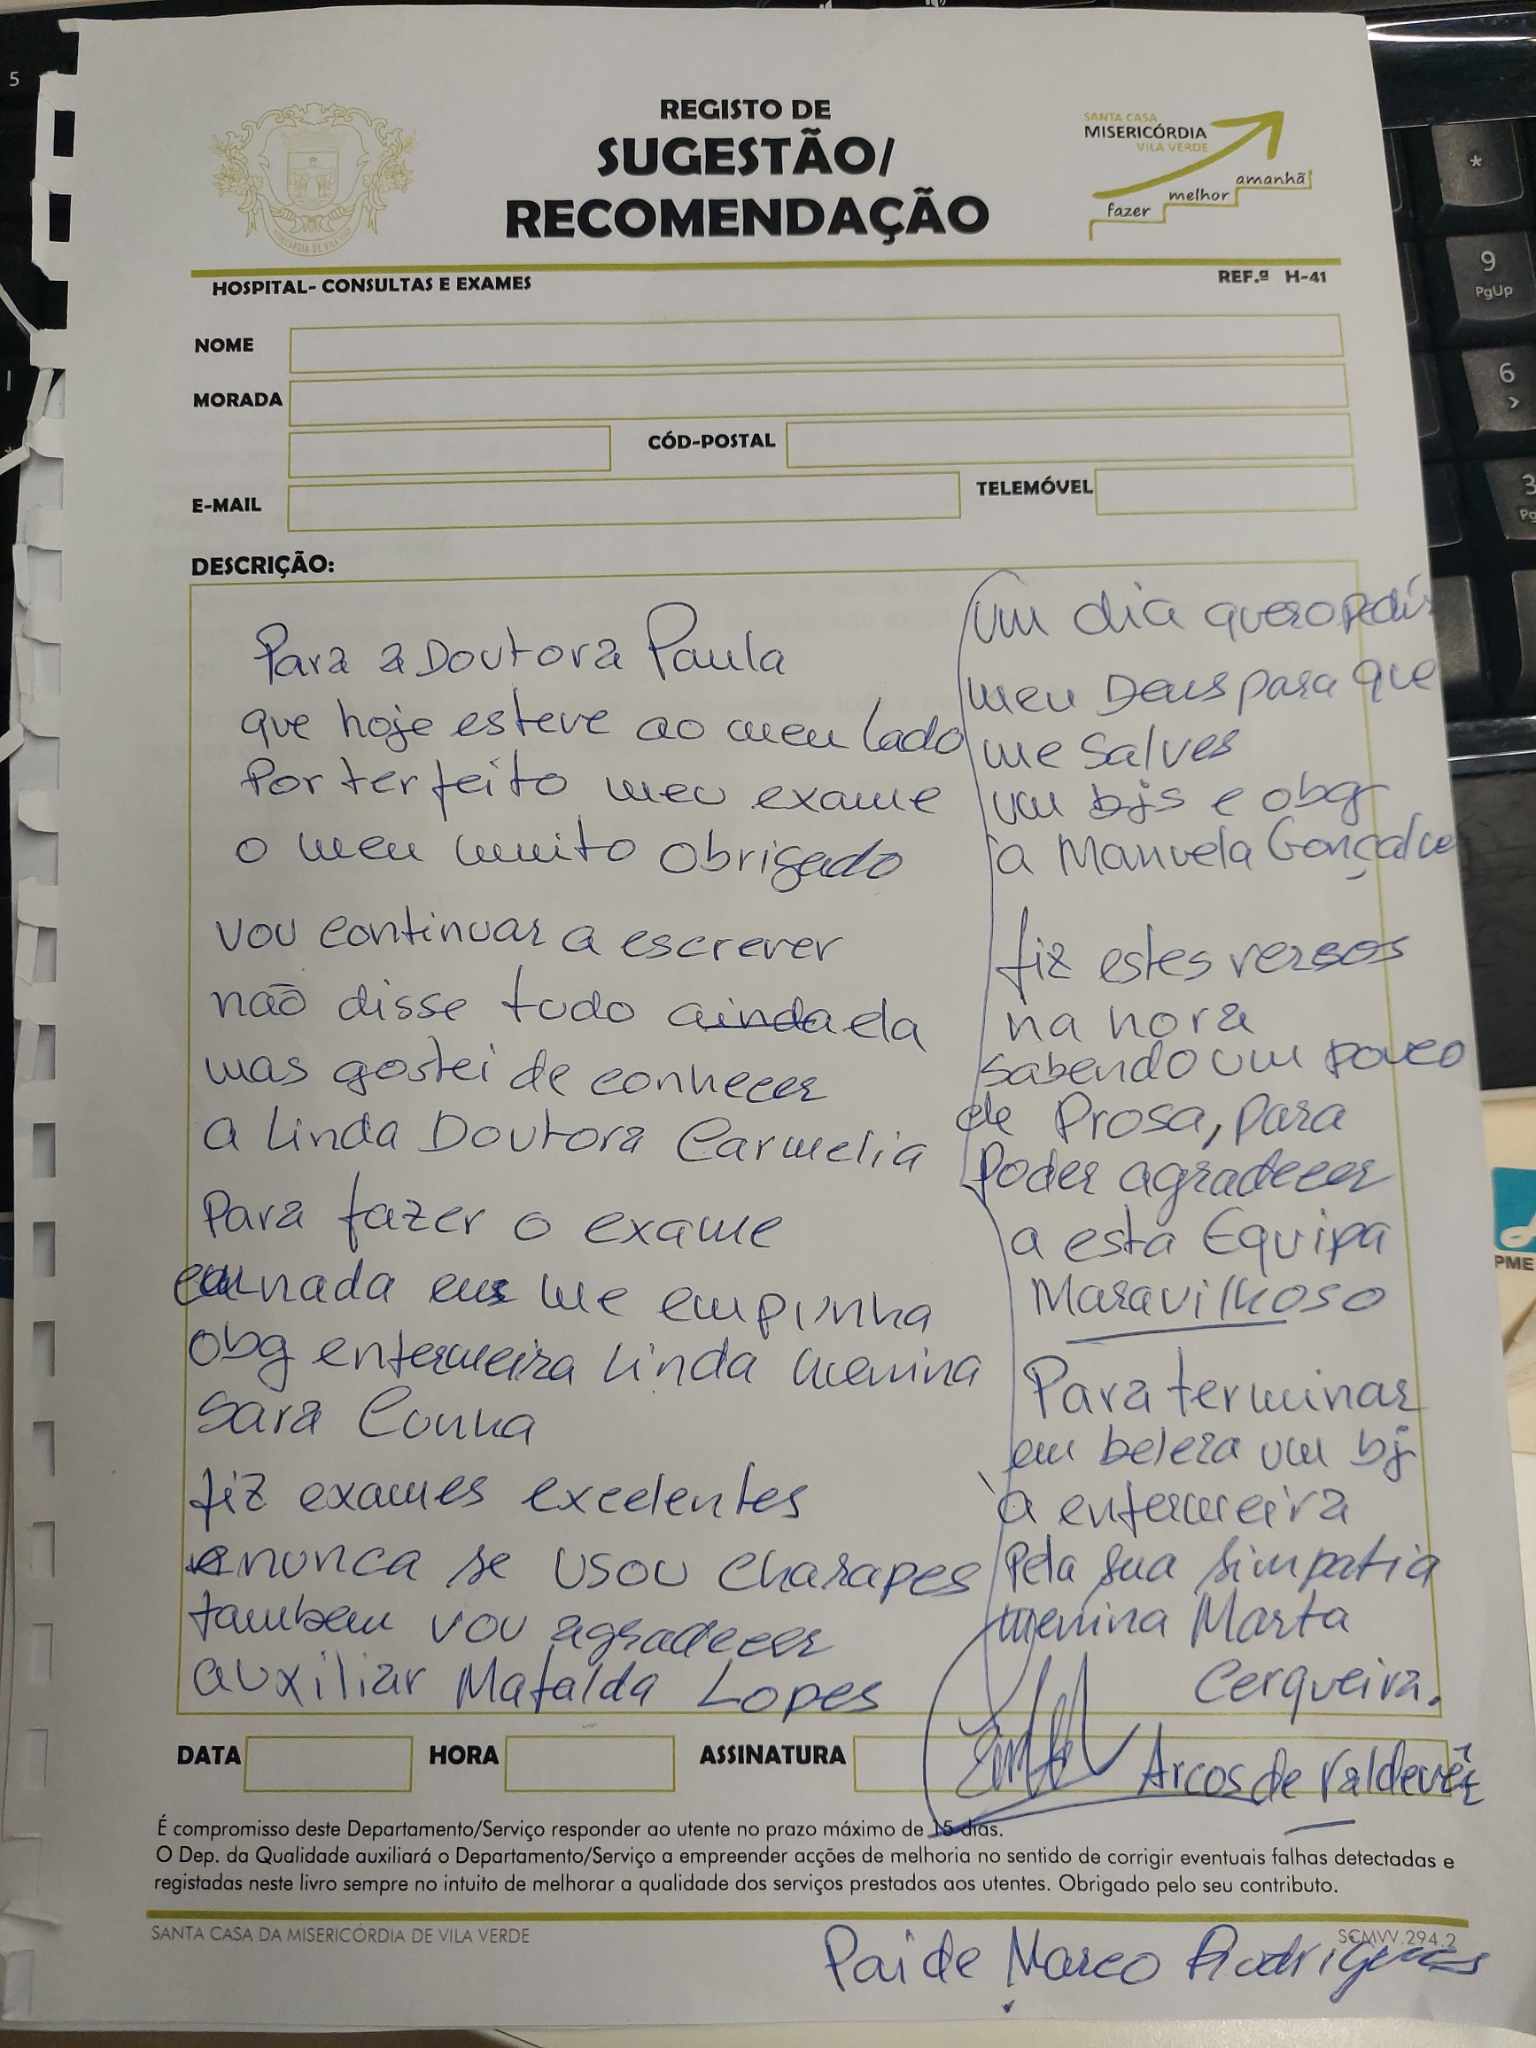 REGISTO DE
SUGESTÃO/
RECOMENDAÇÃO
SANTA CASA
MISERICÓRDIA
VILA VERDE
fazer melhor amanhã
HOSPITAL- CONSULTAS E EXAMES
REF.ª H-41
NOME
MORADA
CÓD-POSTAL
E-MAIL
TELEMÓVEL
DESCRIÇÃO:
Para a Doutora Paula
que hoje esteve ao meu lado
Por ter feito meu exame
o meu muito obrigado
vou continuar a escrever
não disse tudo ainda ela
mas gostei de conhecer
a Linda Doutora Carmelia
Para fazer o exame
nada me empunha
obg enfermeira linda menina
Sara Cunha
fiz exames excelentes
e nunca se usou charapes
tambem vou agradecer
auxiliar Mafalda Lopes
Um dia quero pedir
meu Deus para que
me salves
um bjs e obg
a Manuela Gonçalve
fiz estes versos
na hora
sabendo um pouco
de Prosa, para
Poder agradecer
a esta Equipa
Maravilhoso
Para terminar
em beleza um bj
à enfermeira
Pela sua simpatia
menina Marta
Cerqueira.
DATA
HORA
ASSINATURA
Arcos de Valdevêz
É compromisso deste Departamento/Serviço responder ao utente no prazo máximo de 15 dias.
O Dep. da Qualidade auxiliará o Departamento/Serviço a empreender acções de melhoria no sentido de corrigir eventuais falhas detectadas e
registadas neste livro sempre no intuito de melhorar a qualidade dos serviços prestados aos utentes. Obrigado pelo seu contributo.
SANTA CASA DA MISERICÓRDIA DE VILA VERDE
SCMVV.294.2
Pai de Marco Rodrigues
5
*
9
PgUp
6
>
3
Pg
PME